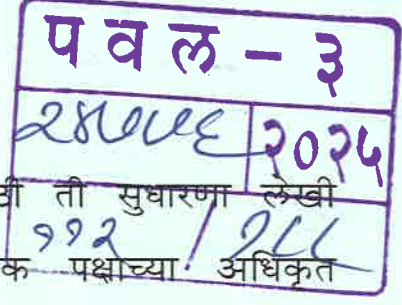 पवल - ३
२०२५
ती सुधारणा लेखी
११२ / १८८
क पक्षाच्या अधिकृत